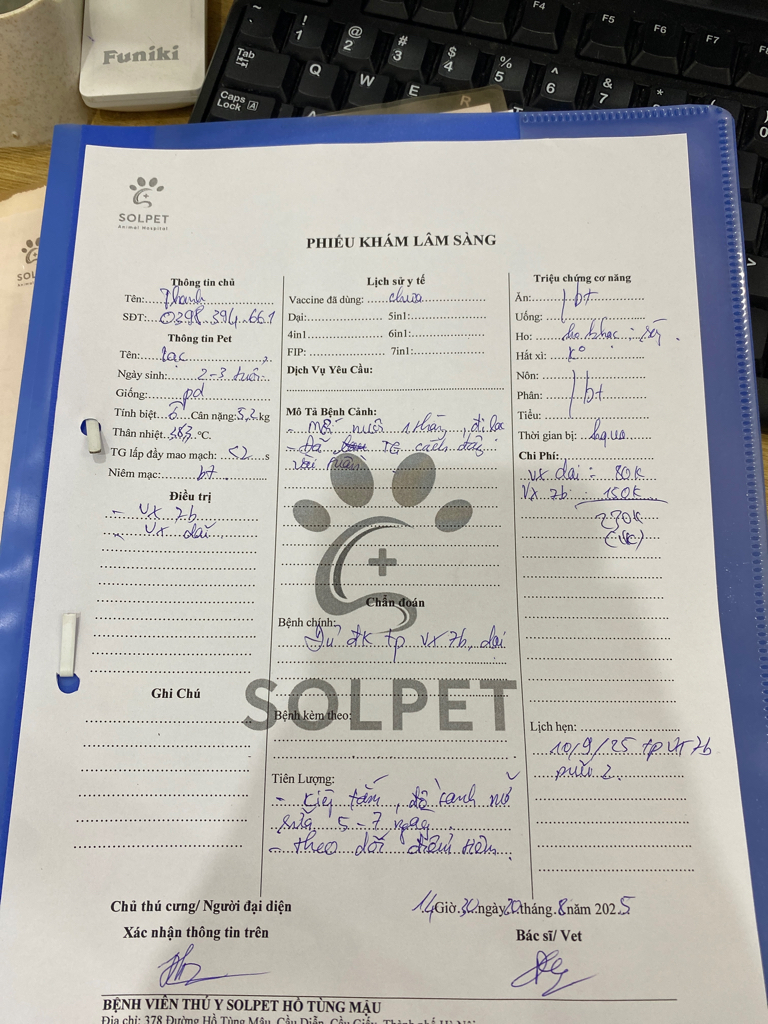 Funiki
Tab
Caps Lock
Q
W
E
R
! 1
@ 2
# 3
$ 4
% 5
^ 6
& 7
F4
F5
F6
F7
SOLPET
Animal Hospital
PHIẾU KHÁM LÂM SÀNG
Thông tin chủ
Tên: Thanh
SĐT: 0398.394.661
Thông tin Pet
Tên: Lạc
Ngày sinh: 2-3 tuổi
Giống: pd
Tính biệt Cân nặng: 5,2 kg
Thân nhiệt °C.
TG lấp đầy mao mạch: <2 s
Niêm mạc: bt
Điều trị
- VX 7b
- VX dại
Ghi Chú
Lịch sử y tế
Vaccine đã dùng: chưa
Dại: 5in1:
4in1 6in1:
FIP: 7in1:
Dịch Vụ Yêu Cầu:
Mô Tả Bệnh Cảnh:
- Mới nuôi 1 tháng, đi lạc
- Đã TG cách đây
vài tuần
Chẩn đoán
Bệnh chính:
Đủ đk tp VX 7b, dại
SOLPET
Bệnh kèm theo:
Tiên Lượng:
- Kiêng tắm, đồ tanh, mỡ
sữa 5-7 ngày.
- theo dõi điểm tiêm.
Triệu chứng cơ năng
Ăn: bt
Uống:
Ho:
Hắt xì: K°
Nôn:
Phân: bt
Tiểu:
Thời gian bị: hqua
Chi Phí:
VX dại: 80K
VX 7b: 150K
230K
(CK)
Lịch hẹn:
10/9/25 tp VX 7b
mũi 2.
Chủ thú cưng/ Người đại diện
Xác nhận thông tin trên
14 Giờ 30 ngày 20 tháng 8 năm 2025
Bác sĩ/ Vet
BỆNH VIỆN THÚ Y SOLPET HỒ TÙNG MẬU
Địa chỉ: 378 Đường Hồ Tùng Mậu, Cầu Diễn, Cầu Giấy, Thành phố Hà Nội